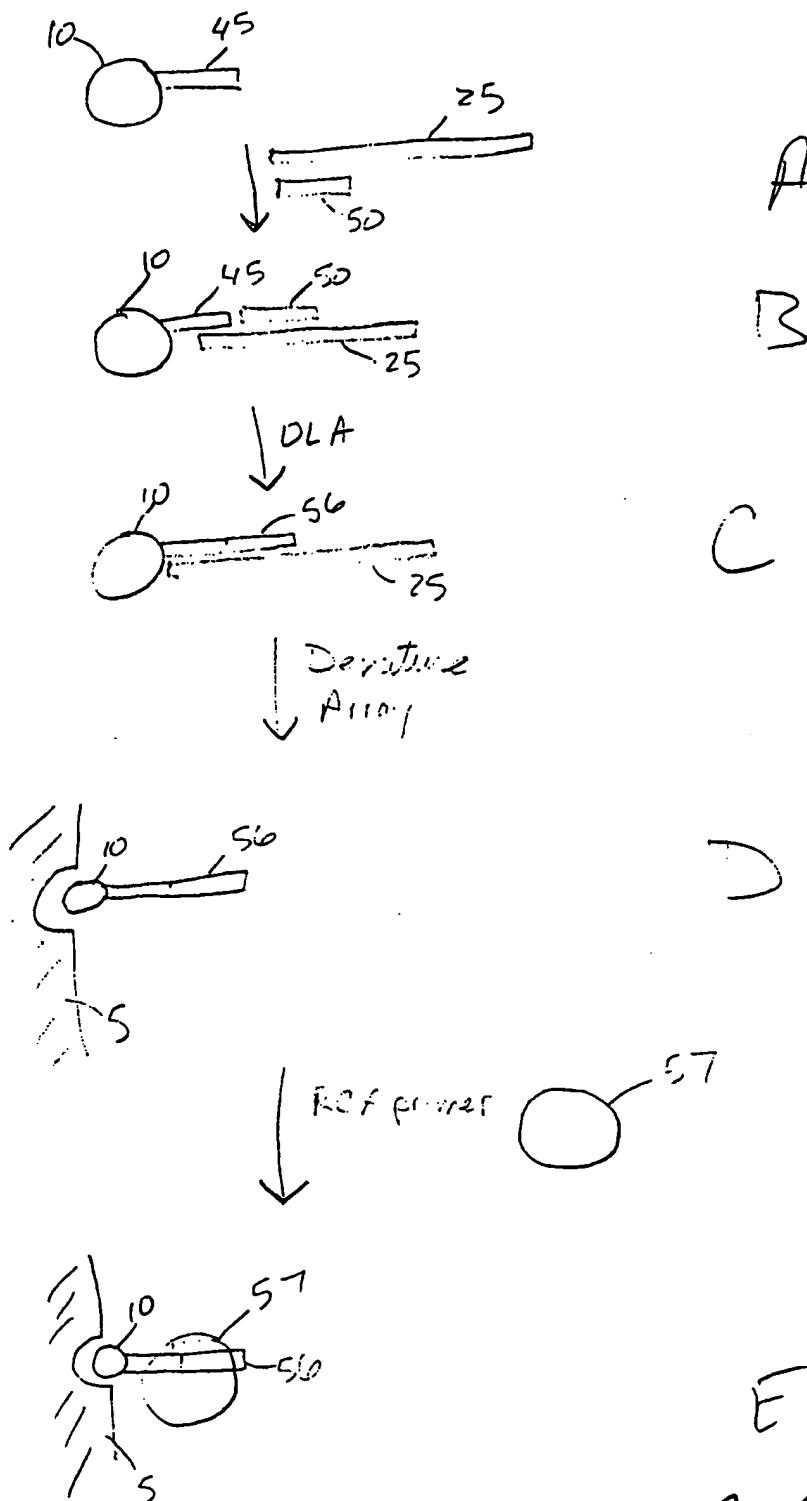 10 45
25
A
50
10 45 50
B
25
DLA
10 56
C
25
Denature
Array
10 56
D
5
57
RCA primer
10 57
56
E
5